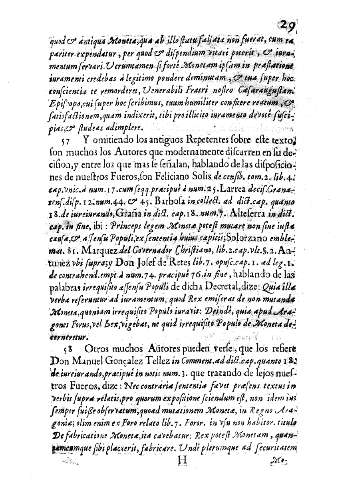 29
quod & antiqua Moneta, qua ab illo statu falsata non fuerat, cum ea
pariter expendatur, per quod & dispendium vitari poterit, & iura-
mentum servari. Verumtamen si fortè Monetam ipsam in præstatione
iuramenti credebas à legitimo pondere deminutam, & tua super hoc
conscientia te remorderet, Venerabili Fratri nostro Cæsaraugustan.
Episcopo, cui super hoc scribimus, tuum humiliter confitere reatum, &
satisfactionem, quam indixerit, tibi pro illicito iuramento devotè susci-
pias, & studeas adimplere.
57 Y omitiendo los antiguos Repetentes sobre este texto,
son muchos los Autores que modernamente discurren en su de
cision, y entre los que mas se señalan, hablando de las disposicio-
nes de nuestros Fueros, son Feliciano Solis de censib. tom. 2. lib. 4.
cap. unic. à num. 17. cum seqq. præcipuè à num. 25. Larrea decis. Grana-
tens. disp. 12. num. 44. & 45. Barbosa in collect. ad dict. cap. quanto
18. de iureiurando, Graña in dict. cap. 18. num. 7. Alteserra in dict.
cap. in fine, ibi: Princeps legem Monetæ potest mutare non sine iusta
causa, & assensu Populi, ex sententia huius capitis; Solorzano emble-
mat. 81. Marquez del Governador Christiano, lib. 2. cap. vlt. §. 2. An-
tunez vbi supra, y Don Josef de Retes lib. 7. opusc. cap. 1. ad leg. 1.
de contrahend. empt. à num. 74. præcipuè 76. in fine, hablando de las
palabras irrequisito assensu Populi de dicha Decretal, dize: Quia illa
verba referuntur ad iuramentum, quod Rex emiserat de non mutanda
Moneta, quoniam irrequisito Populo iuravit: Deindè, quia apud Ara-
gones Forus, vel Lex, vigebat, ne quid irrequisito Populo de Moneta de-
cerneretur.
58 Otros muchos Autores pueden verse, que los refiere
Don Manuel Gonçalez Tellez in Comment. ad dict. cap. quanto 18.
de iureiurando, præcipuè in notis num. 3. que tratando de lejos nues-
tros Fueros, dize: Nec contraria sententia favet præsens textus in
verbis supra relatis, pro quorum expositione sciendum est, non idem ius
semper fuisse observatum, quoad mutationem Monetæ, in Regno Ara-
goniæ; olim enim ex Foro relato lib. 7. Foror. in vsu non habitor. titulo
De fabricatione Monetæ, ita cavebatur: Rex potest Monetam, quan-
documque sibi placuerit, fabricare. Undi plerumque ad securitatem
H Mo-